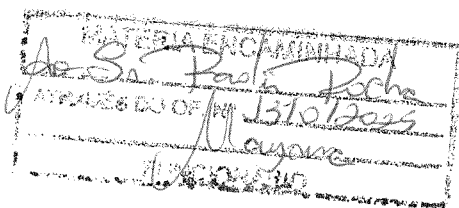 MATÉRIA ENCAMINHADA
Ao Sr. Paulo Rocha
ATRAVÉS DO OF. Nº 1310/2025
FUNCIONÁRIO